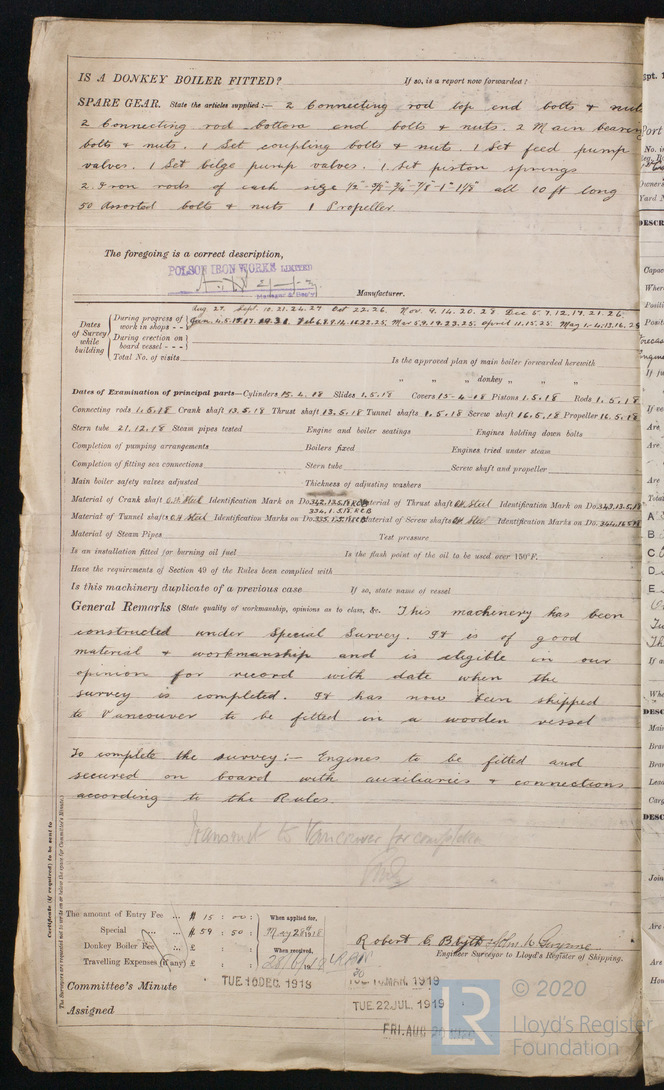 IS A DONKEY BOILER FITTED? If so, is a report now forwarded?
SPARE GEAR. State the articles supplied:— 2 Connecting rod top end bolts & nuts
2 Connecting rod bottom end bolts & nuts. 2 Main bearing
bolts & nuts. 1 Set coupling bolts & nuts. 1 Set feed pump
valves. 1 Set belge pump valves. 1 Set piston springs
2 Iron rods of each size 1/2"-5/8"-3/4"-7/8"-1"-1 1/8" all 10 ft long
50 Assorted bolts & nuts 1 Propeller.
The foregoing is a correct description,
POLSON IRON WORKS LIMITED
Manufacturer.
Dates of Survey while building
During progress of work in shops - - Aug 27. Sept. 10.21.24.27 Oct 22.26. Nov. 9.14.20.28 Dec 5.7.12.17.21.26
During erection on board vessel - - -
Total No. of visits
Is the approved plan of main boiler forwarded herewith
" " donkey " " "
Dates of Examination of principal parts—Cylinders 15.4.18 Slides 1.5.18 Covers 15-4-18 Pistons 1.5.18 Rods 1.5.18
Connecting rods 1.5.18 Crank shaft 13.5.18 Thrust shaft 13.5.18 Tunnel shafts 1.5.18 Screw shaft 16.5.18 Propeller 16.5.18
Stern tube 21.12.18 Steam pipes tested Engine and boiler seatings Engines holding down bolts
Completion of pumping arrangements Boilers fixed Engines tried under steam
Completion of fitting sea connections Stern tube Screw shaft and propeller
Main boiler safety valves adjusted Thickness of adjusting washers
Material of Crank shaft O.H. Steel Identification Mark on Do. 342.13.5.18 KCB Material of Thrust shaft OH Steel Identification Mark on Do. 343.13.5.18
334.1.5.18.KCB
Material of Tunnel shafts O.H Steel Identification Marks on Do. 335.1.5.18 KCB Material of Screw shafts OH Steel Identification Marks on Do. 344.16.5.18
Material of Steam Pipes Test pressure
Is an installation fitted for burning oil fuel Is the flash point of the oil to be used over 150°F.
Have the requirements of Section 49 of the Rules been complied with
Is this machinery duplicate of a previous case If so, state name of vessel
General Remarks (State quality of workmanship, opinions as to class, &c. This machinery has been
constructed under Special Survey. It is of good
material & workmanship and is eligible in our
opinion for record with date when the
survey is completed. It has now been shipped
to Vancouver to be fitted in a wooden vessel
To complete the survey:— Engines to be fitted and
secured on board with auxiliaries & connections
according to the Rules.
Transmit to Vancouver for completion
Certificate (if required) to be sent to
The Surveyors are requested not to write on or below the space for Committee's Minute.
The amount of Entry Fee ... $ 15 : 00 : When applied for,
Special ... $ 59 : 50 : May 28 1918
Donkey Boiler Fee ... £ : : When received,
Travelling Expenses (if any) £ : :
Robert C. Blyth
Engineer Surveyor to Lloyd's Register of Shipping.
Committee's Minute TUE 10 DEC. 1918 MAR. 1919
TUE 22 JUL. 1919
Assigned FRI. AUG
LR © 2020
Lloyd's Register
Foundation